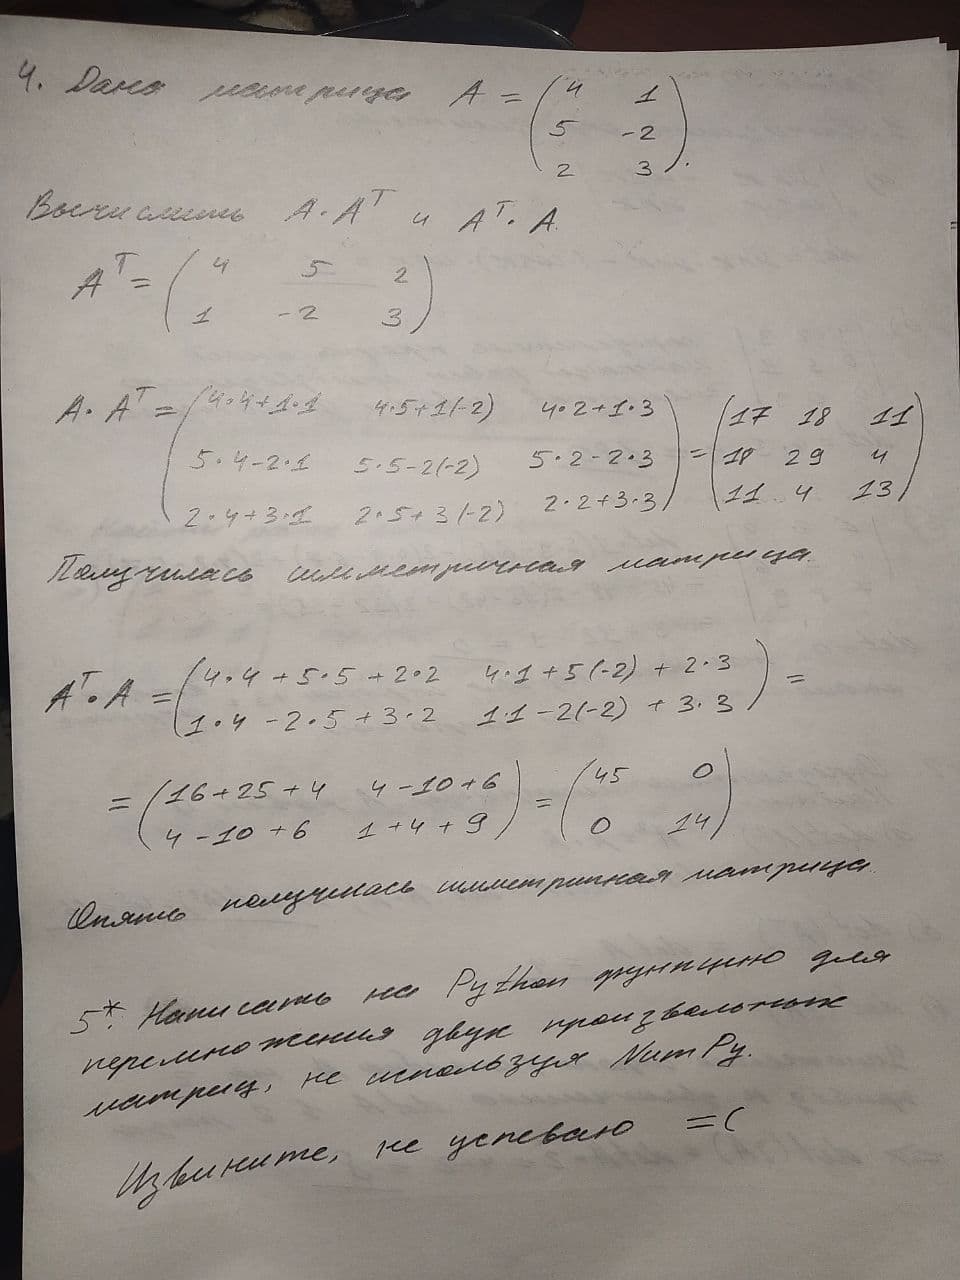 4. Дана матрица A = ( 4 1
5 -2
2 3 ).
Вычислить A·Aᵀ и Aᵀ·A.
Aᵀ = ( 4 5 2
1 -2 3 )
A·Aᵀ = ( 4·4+1·1 4·5+1(-2) 4·2+1·3 ) = ( 17 18 11 )
5·4-2·1 5·5-2(-2) 5·2-2·3 18 29 4
2·4+3·1 2·5+3(-2) 2·2+3·3 11 4 13
Получилась симметричная матрица.
Aᵀ·A = ( 4·4+5·5+2·2 4·1+5(-2)+2·3 ) =
1·4-2·5+3·2 1·1-2(-2)+3·3
= ( 16+25+4 4-10+6 ) = ( 45 0 )
4-10+6 1+4+9 0 14
Опять получилась симметричная матрица.
5*. Написать на Python функцию для
перемножения двух произвольных
матриц, не используя NumPy.
Извините, не успеваю =(